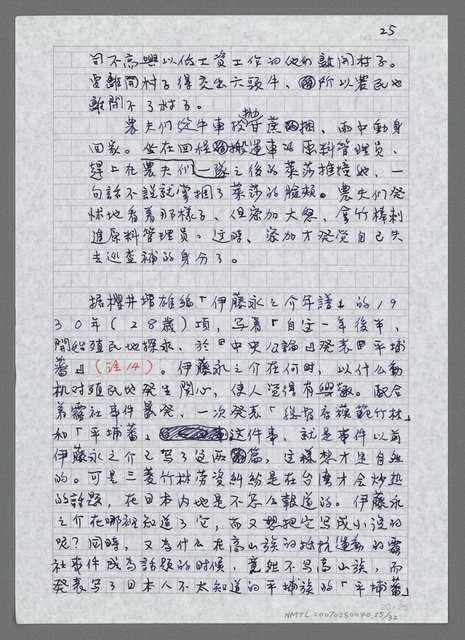 NO. 25
司不高興以低工資工作的他們離開村子。
要離開村子得交出六頭牛、所以農民也
離開不了村子。
農夫們從牛車拋甘蔗捆、雨中動身
回家。坐在回程搬運車的原料管理員、
碰上在農夫們一隊之後的萊莎推搪她、一
句話不說就掌摑了萊莎的臉頰。農夫們發
怵地看着那樣子、但家加大怒、拿竹槍刺
進原料管理員。這時、家加才發覺自己失
去巡查補的身分了。
据櫻井增雄編「伊藤永之介年譜」的19
30年(28歲)項,写着「自这一年後半、
開始殖民地探求、於『中央公論』發表『平埔
蕃』(註14)。伊藤永之介在何時、以什么動
机对殖民地発生関心、使人覚得有興趣。配合
着霧社事件暴発、一次発表「総督府模範竹林」
和「平埔蕃」这件事、就是事件以前
伊藤永之介已写了这两篇、这樣想才生自然
的。可是三菱竹林劳資糾紛是在台湾才会炒热
的話題、在日本内地是不怎么報道的。伊藤永
之介在哪裡知道了它、而又想把它写成小說的
呢?同時、又為什么在高山族的抵抗運動的霧
社事件成為話題的時候、竟然不写高山族、而
発表写了日本人不太知道的平埔族的「平埔蕃」
20×25
NMTL 20070280040, 25/32